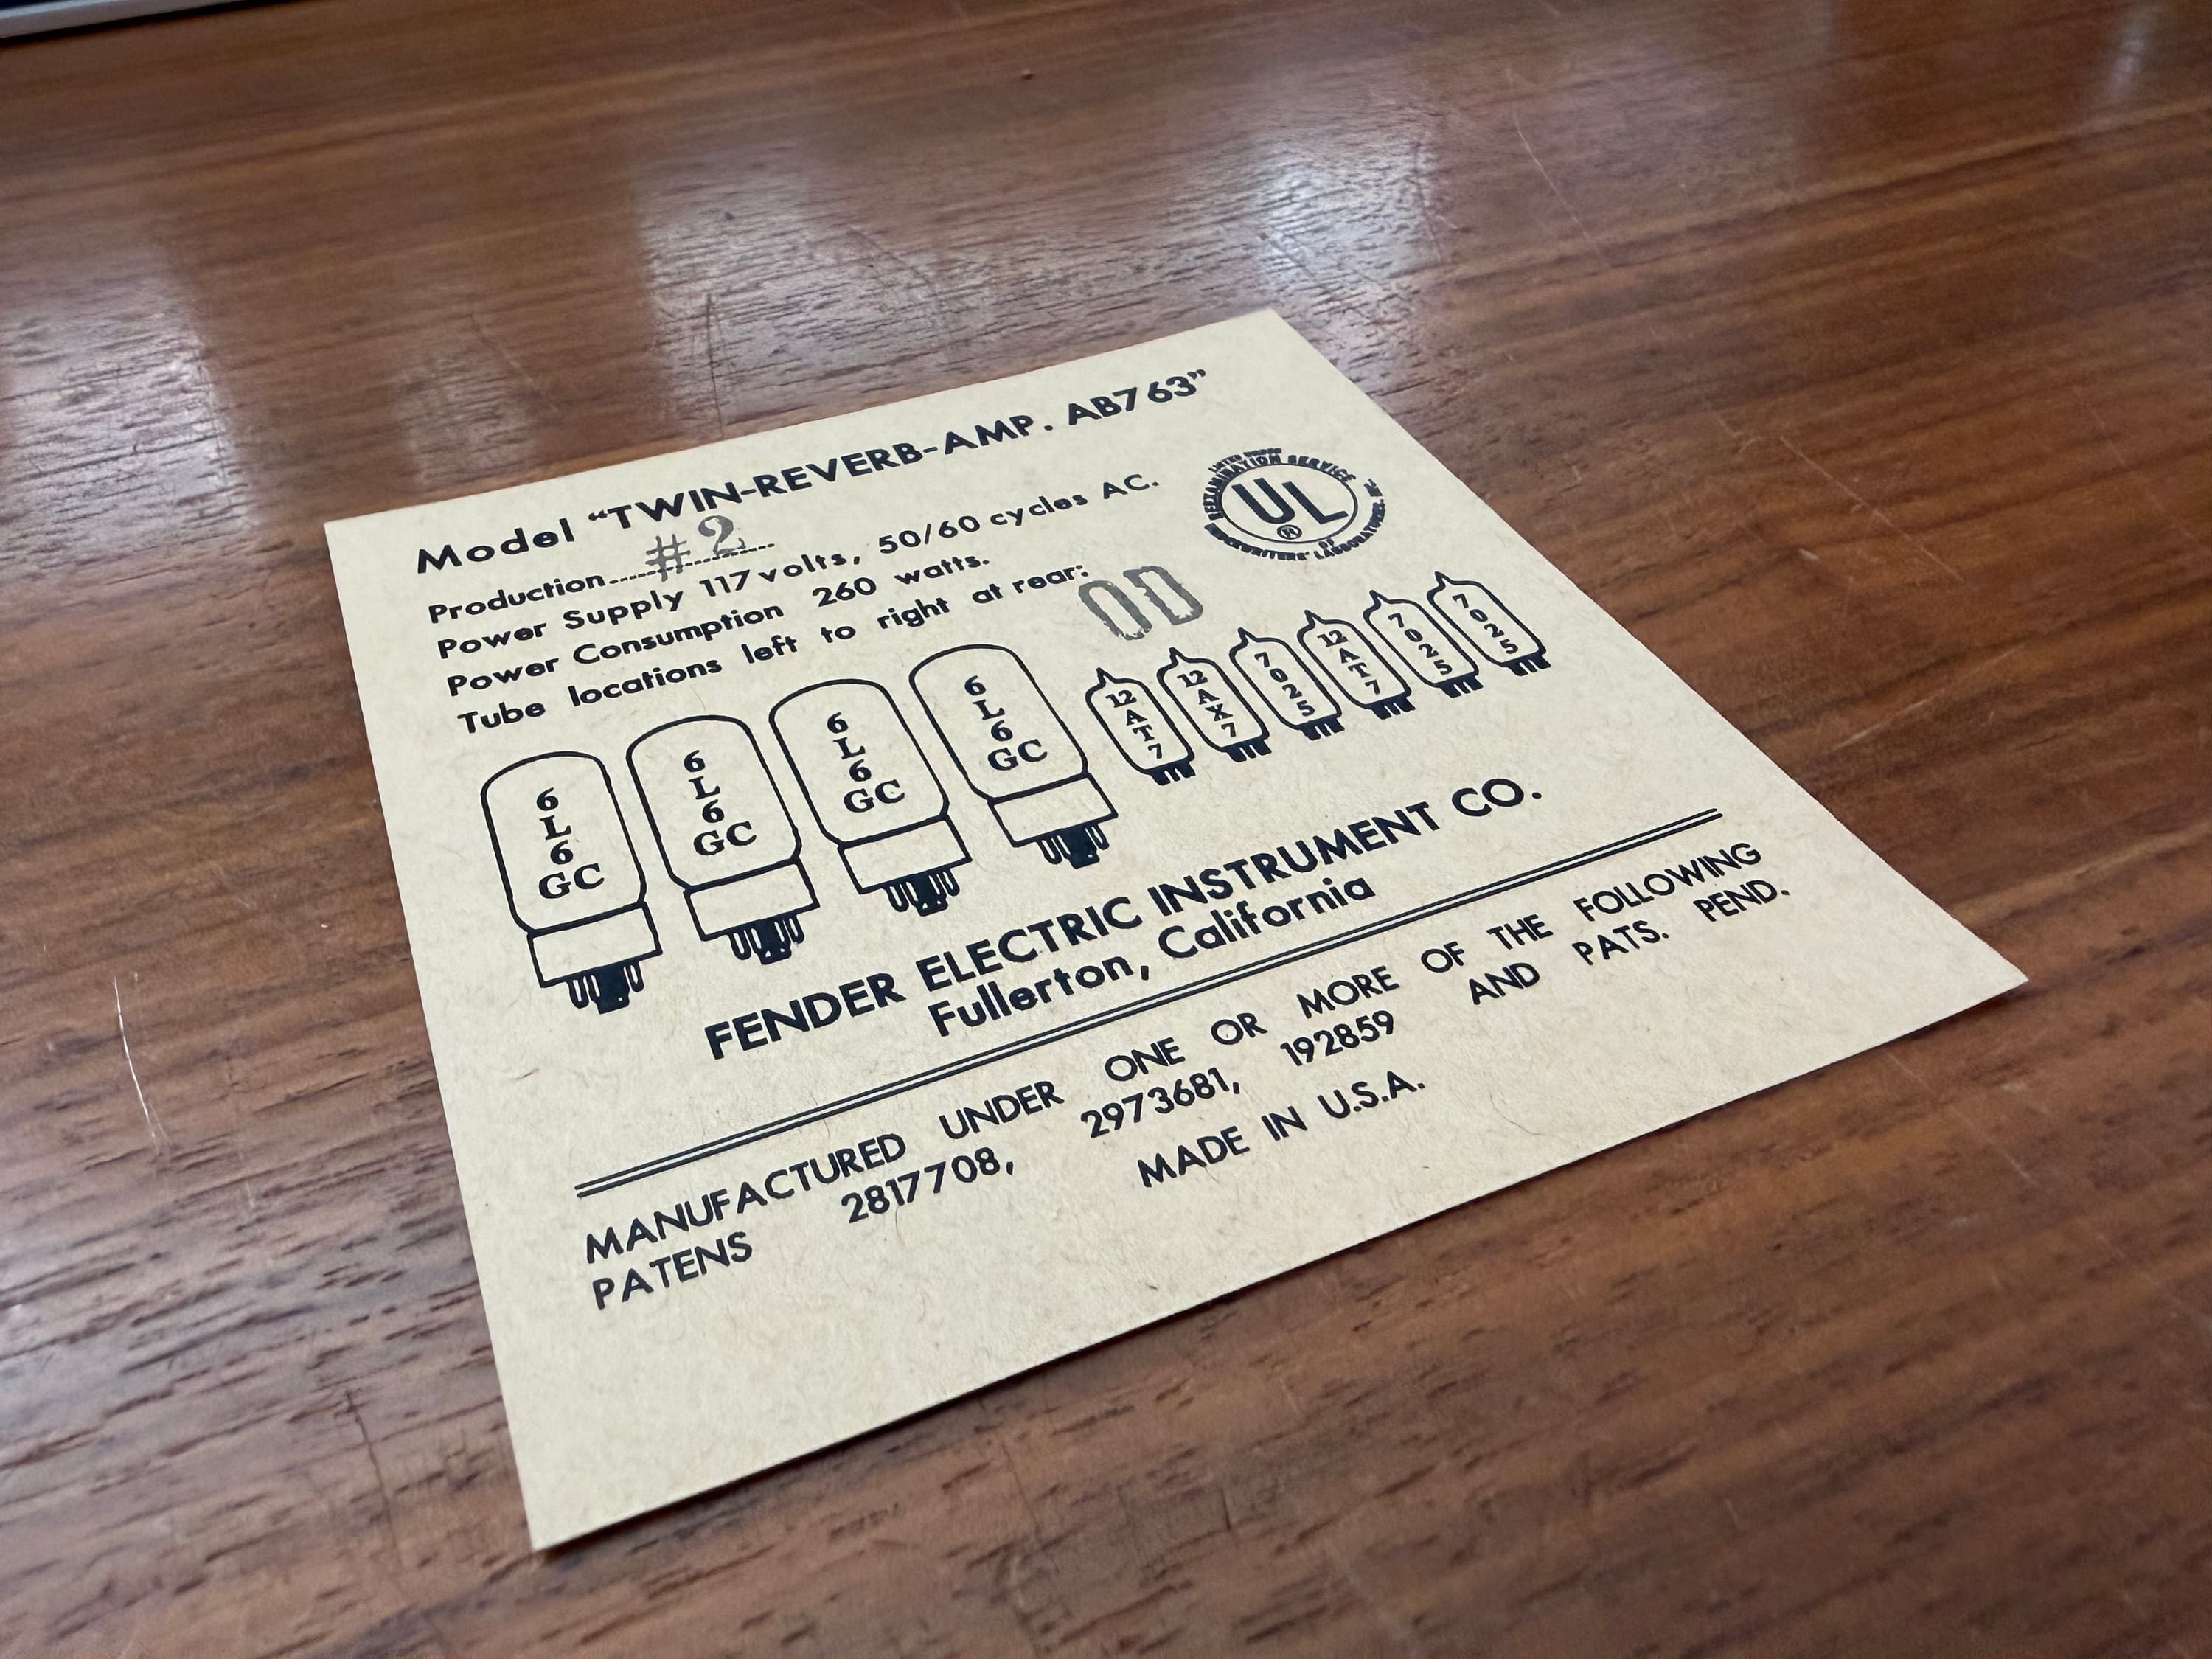 Model “TWIN-REVERB-AMP. AB763”
Production #2
Power Supply 117 volts, 50/60 cycles AC.
Power Consumption 260 watts.
Tube locations left to right at rear:
OD
REEXAMINATION SERVICE
UL
OF
6L6GC 6L6GC 6L6GC 6L6GC 12AT7 12AX7 7025 12AT7 7025 7025
FENDER ELECTRIC INSTRUMENT CO.
Fullerton, California
MANUFACTURED UNDER ONE OR MORE OF THE FOLLOWING
PATENS 2817708, 2973681, 192859 AND PATS. PEND.
MADE IN U.S.A.